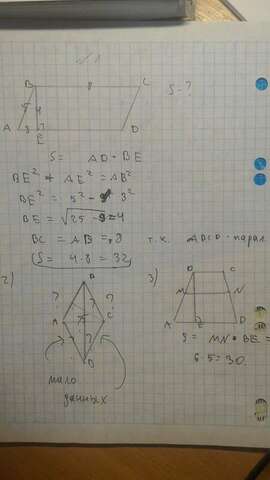 √1
B 8 C
5 4
A 3 E D
S - ?
S = AD · BE
BE² + AE² = AB²
BE² = 5² - 3²
BE = √25 - 9 = 4
BC = AD = 8 т.к. ABCD - парал.
S = 4 · 8 = 32
2) 3)
B B C
? ?
A C M N
A E D
D
мало
данных
S = MN · BE =
6 · 5 = 30